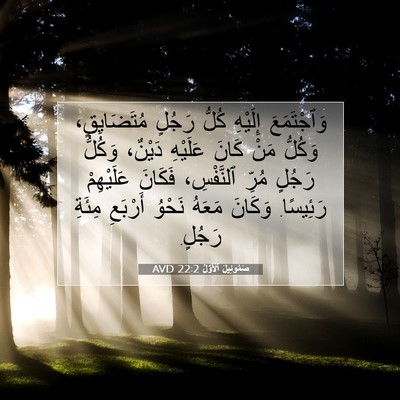 وَٱجْتَمَعَ إِلَيْهِ كُلُّ رَجُلٍ مُتَضَايِقٍ،
وَكُلُّ مَنْ كَانَ عَلَيْهِ دَيْنٌ، وَكُلُّ
رَجُلٍ مُرِّ ٱلنَّفْسِ، فَكَانَ عَلَيْهِمْ
رَئِيسًا. وَكَانَ مَعَهُ نَحْوُ أَرْبَعِ مِئَةِ
رَجُلٍ.
صَمُوئِيلَ ٱلأَوَّلُ 22:2 AVD